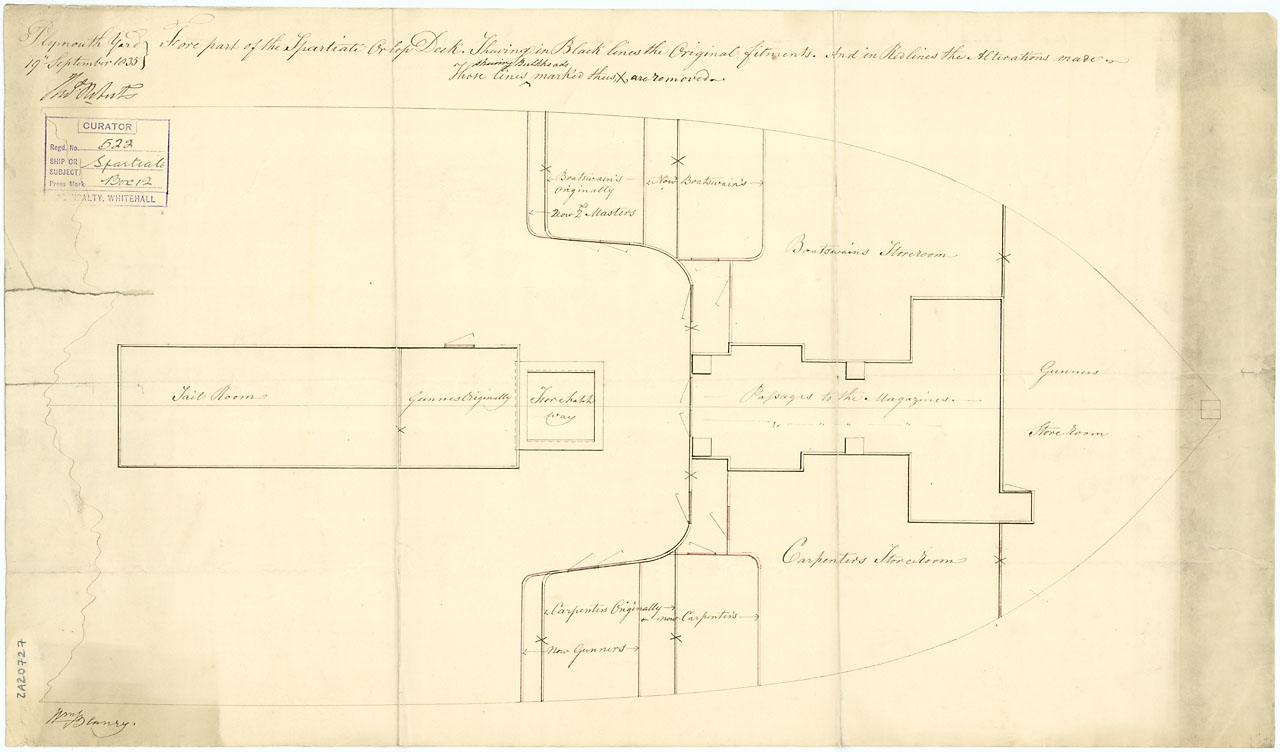 Plymouth Yard
19th September 1835
Fore part of the Spartiate Orlop Deck. Shewing in Black lines the Original fitments. And in Red lines the Alterations made
Those lines shewing Bulkheads marked thus X are removed
Thos Roberts
CURATOR
Regd. No. 522
SHIP OR SUBJECT Spartiate
Press Mark Box 12
ADMIRALTY, WHITEHALL
Boatswain's originally
Now Boatswain's
Now 2nd Masters
Boatswains Storeroom
Sail Room
Gunners Originally
Fore hatch way
Passages to the Magazines.
Gunners
Store room
Carpenters Storeroom
Carpenters Originally
now Carpenter's
Now Gunners
ZA20727